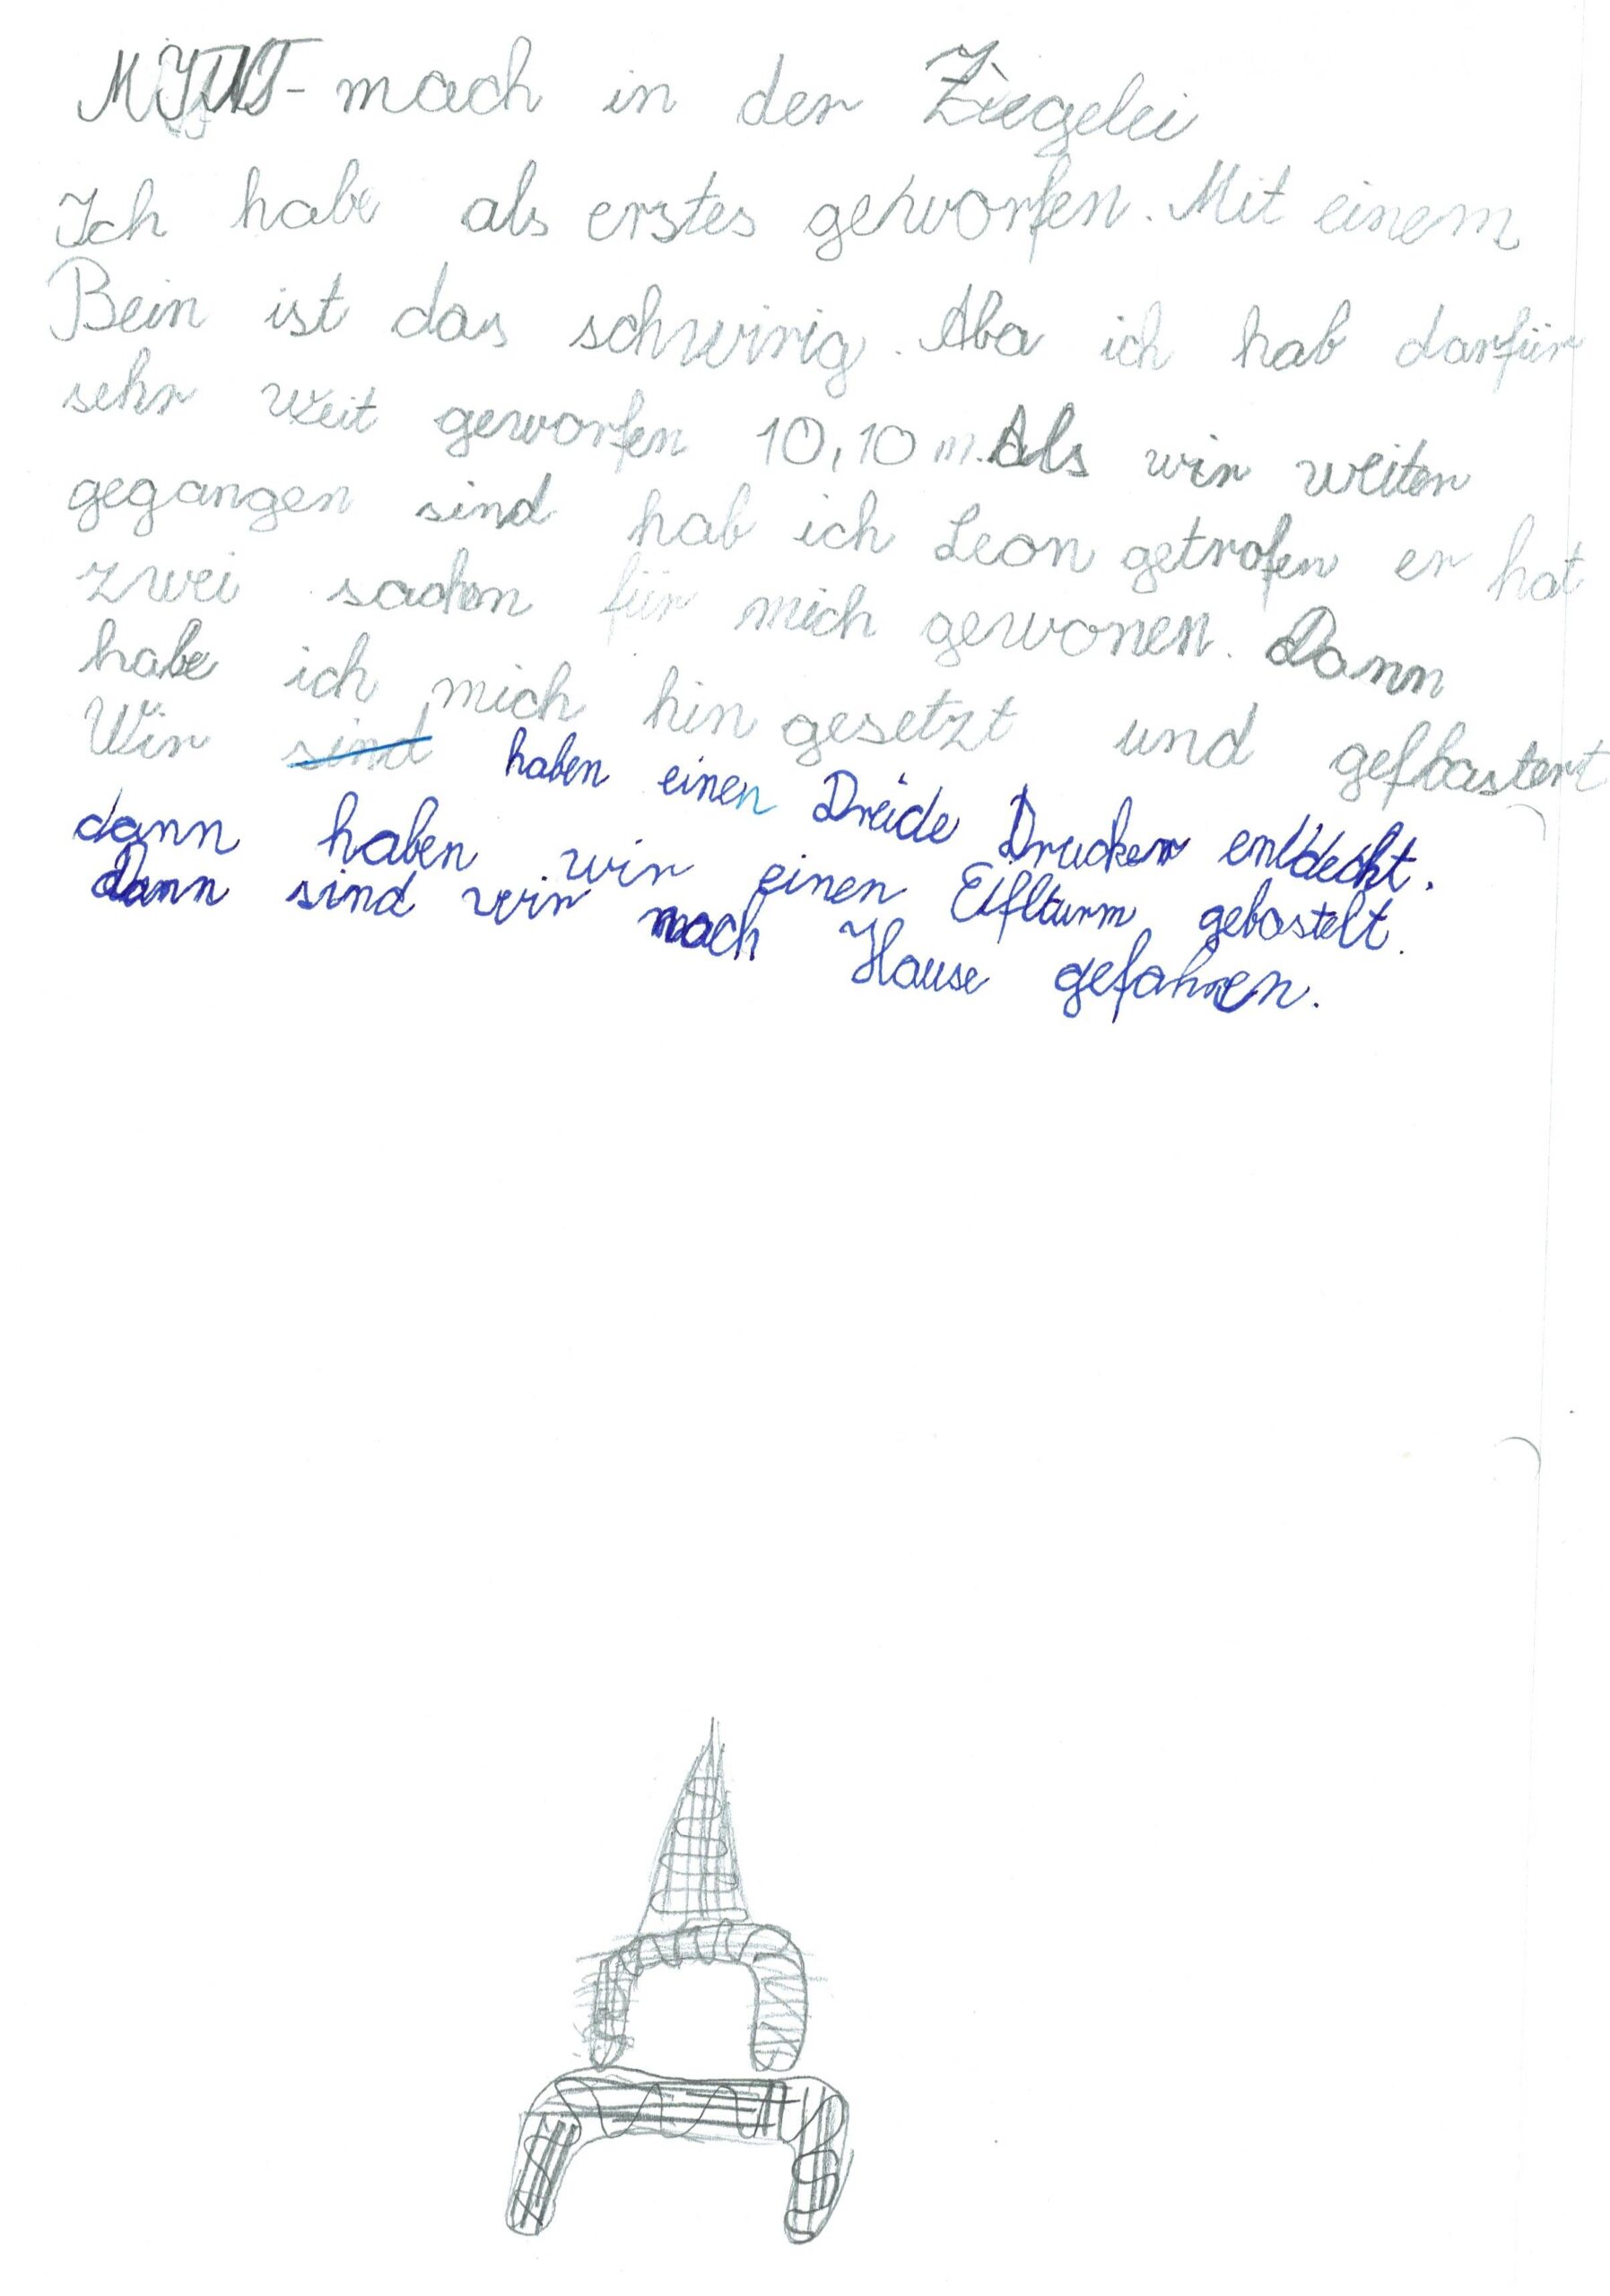 MINT-mach in der Ziegelei
Ich habe als erstes geworfen. Mit einem
Bein ist das schwirig. Aba ich hab darfür
sehr weit geworfen 10,10 m. Als wir weiter
gegangen sind hab ich Leon getrofen er hat
zwei sachen für mich gewonen. Dann
habe ich mich hin gesetzt und gefbastert
Wir sind haben einen Dreide Drucker entdecht.
dann haben wir einen Eiflturm gebastelt.
Dann sind wir nach Hause gefahren.